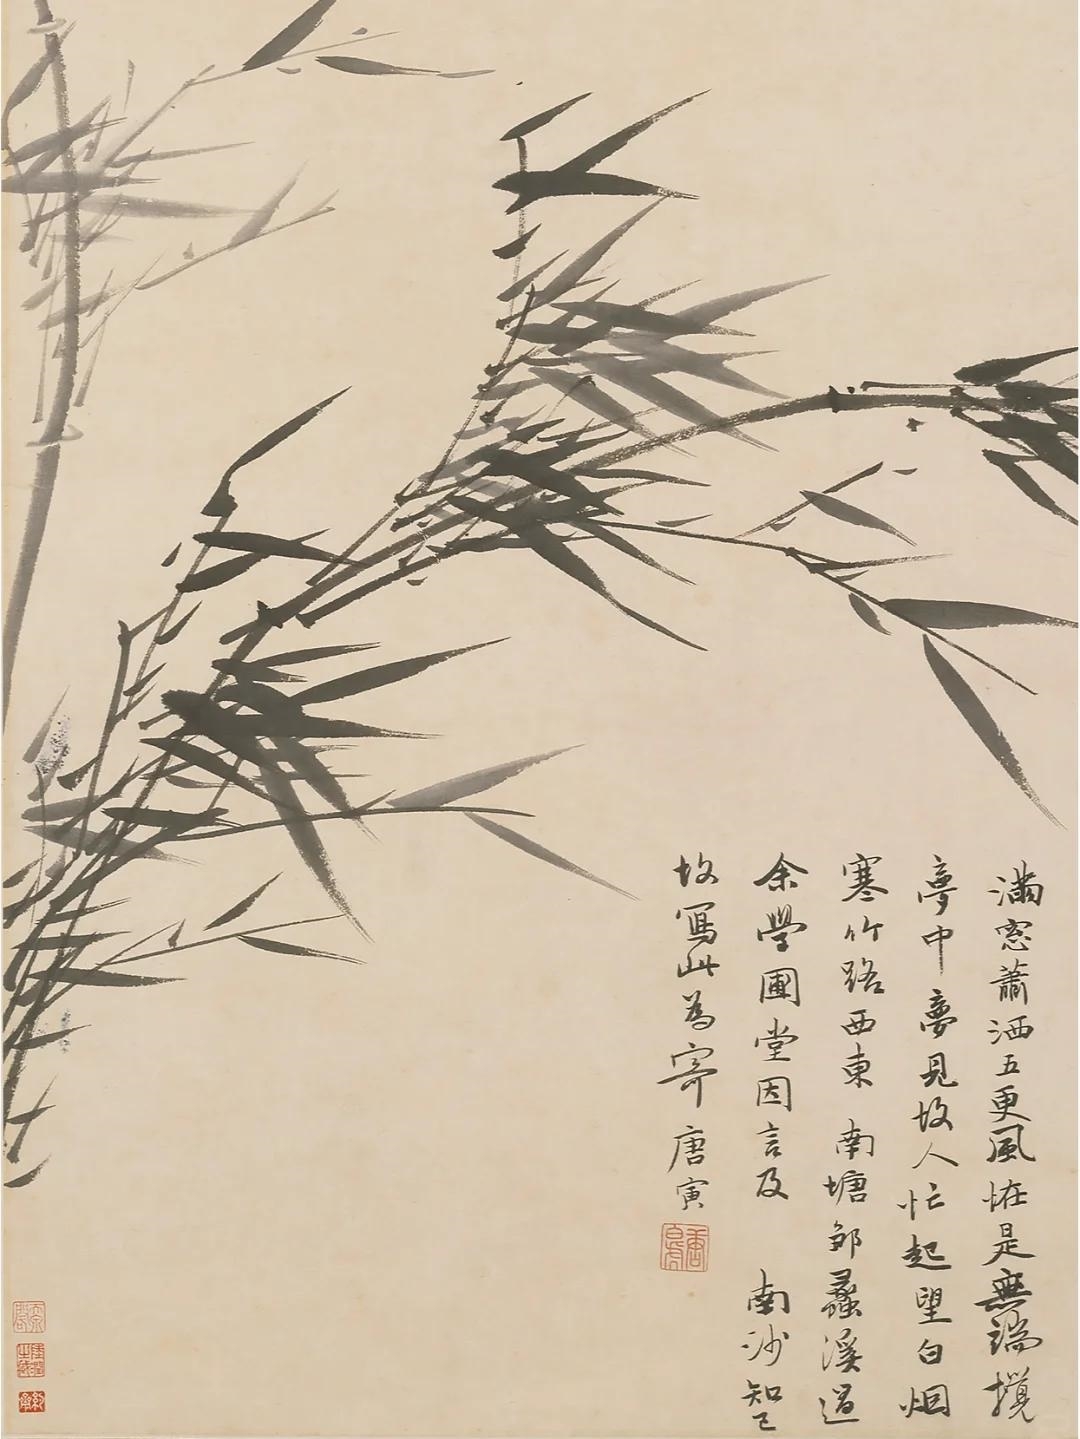 滿窓蕭洒五更風恠是無端攪
夢中夢見故人忙起望白烟
寒竹路西東 南塘鄒蠡溪過
余學圃堂因言及 南沙知己
故寫此為寄 唐寅
唐寅